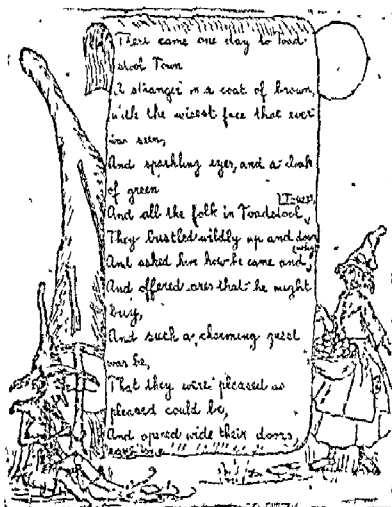 There came one day to Toad
stool Town
A stranger in a coat of brown,
with the wisest face that ever
was seen,
And sparkling eyes, and a cloak
of green
And all the folk in Toadstool Town,
They bustled wildly up and down
And asked him how he came and why
And offered ores that he might
buy,
And such a charming guest
was he,
That they were pleased as
pleased could be,
And opened wide their doors